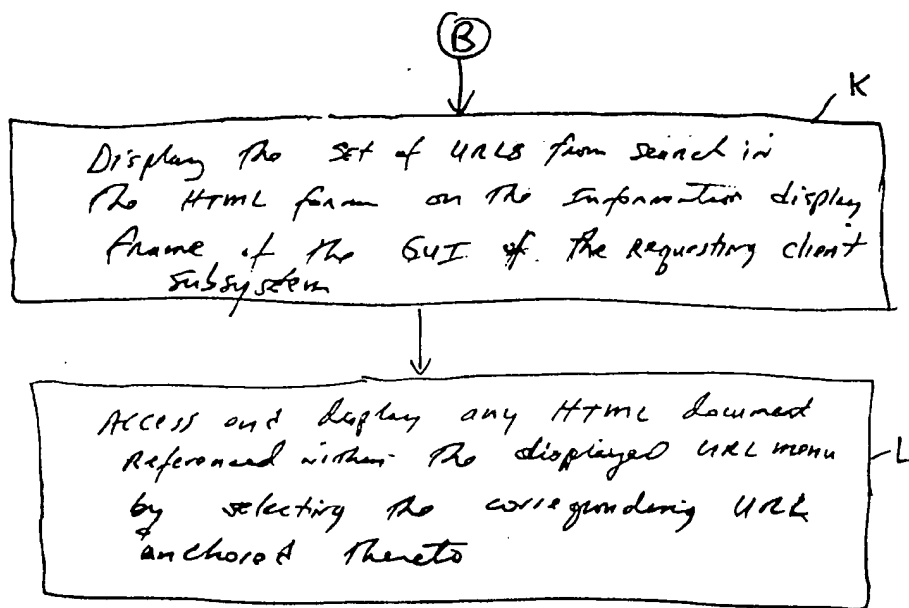 B
K
Display the set of URLs from search in
the HTML form on the Information display
frame of the GUI of the requesting client
subsystem
Access and display any HTML document
Referenced within the displayed URL menu
L
by selecting the corresponding URL
& anchored thereto